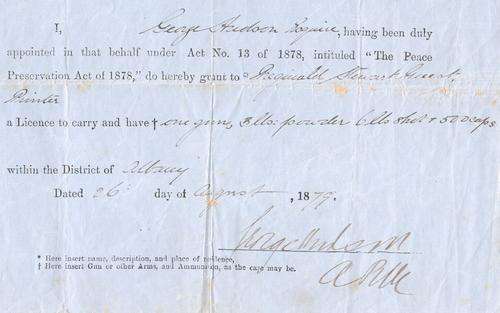 I, George Hudson Esquire, having been duly
appointed in that behalf under Act No. 13 of 1878, intituled “The Peace
Preservation Act of 1878,” do hereby grant to * Reginald Stewart Guest
Printer
a Licence to carry and have † one gun, 3 lbs. powder 6 lbs shot & 500 caps
within the District of Albany
Dated 26th day of August, 1879.
George Hudson
ARM
* Here insert name, description, and place of residence,
† Here insert Gun or other Arms, and Ammunition, as the case may be.